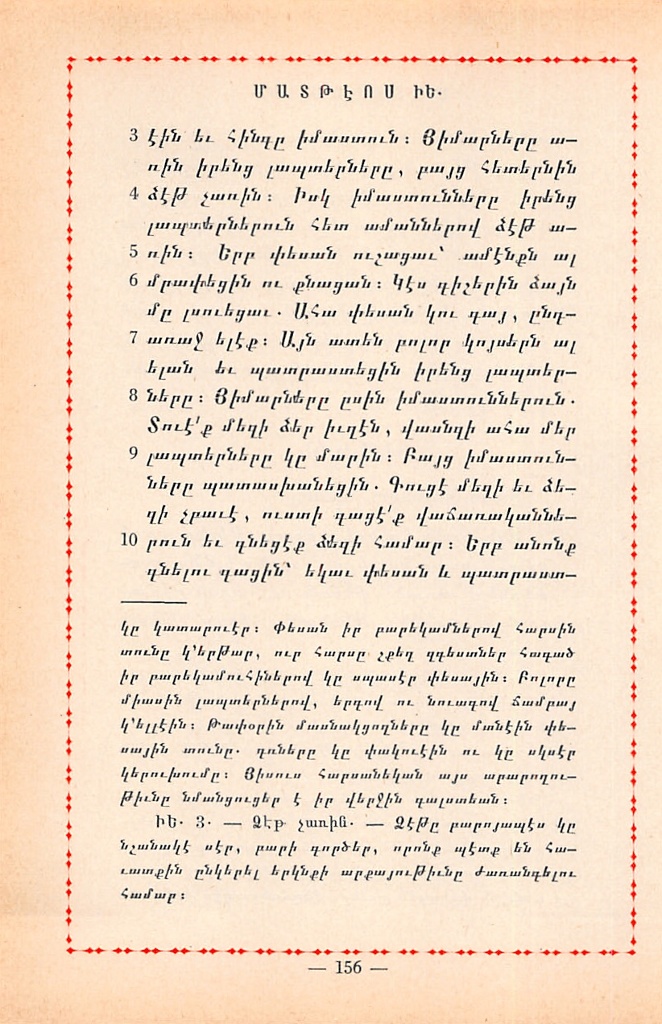 ՄԱՏԹԷՈՍ ԻԵ.
3 էին եւ հինգը իմաստուն։ Յիմարները ա—
ռին իրենց լապտերները, բայց հետերնին
4 ձէթ չառին։ Իսկ իմաստունները իրենց
լապտերներուն հետ ամաններով ձէթ ա—
5 ռին։ Երբ փեսան ուշացաւ՝ ամէնքն ալ
6 մրափեցին ու քնացան։ Կէս գիշերին ձայն
մը լսուեցաւ. Ահա փեսան կու գայ, ընդ—
7 առաջ ելէք։ Այն ատեն բոլոր կոյսերն ալ
ելան եւ պատրաստեցին իրենց լապտեր—
8 ները։ Յիմարները ըսին իմաստուններուն.
Տուէ՛ք մեզի ձեր իւղէն, վասնզի ահա մեր
9 լապտերները կը մարին։ Բայց իմաստուն—
ները պատասխանեցին. Գուցէ մեզի եւ ձե—
զի չբաւէ, ուստի գացէ՛ք վաճառականնե—
10 րուն եւ գնեցէք ձեզի համար։ Երբ անոնք
գնելու գացին՝ եկաւ փեսան և պատրաստ—
կը կատարուէր։ Փեսան իր բարեկամներով հարսին
տունը կ'երթար, ուր հարսը շքեղ զգեստներ հագած
իր բարեկամուհիներով կը սպասէր փեսային։ Բոլորը
միասին լապտերներով, երգով ու նուագով ճամբայ
կ'ելլէին։ Թափօրին մասնակցողները կը մտնէին փե—
սային տունը. դռները կը փակուէին ու կը սկսէր
կերուխումը։ Յիսուս հարսանեկան այս արարողու—
թիւնը նմանցուցեր է իր վերջին գալստեան։
ԻԵ. 3. — Ձէթ չառին. — Ձէթը բարոյապէս կը
նշանակէ սէր, բարի գործեր, որոնք պէտք են հա—
ւատքին ընկերել երկնքի արքայութիւնը ժառանգելու
համար։
— 156 —